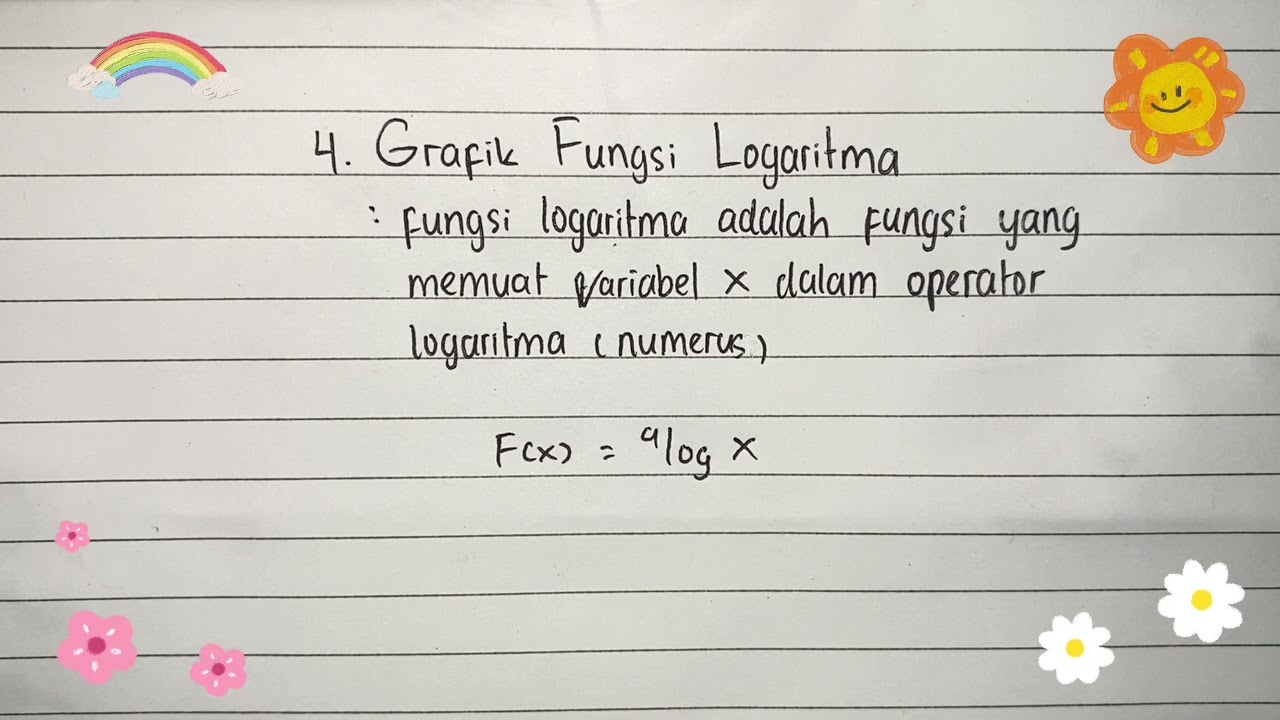 4. Grafik Fungsi Logaritma
: fungsi logaritma adalah fungsi yang
memuat variabel x dalam operator
logaritma (numerus)
F(x) = ᵃlog x